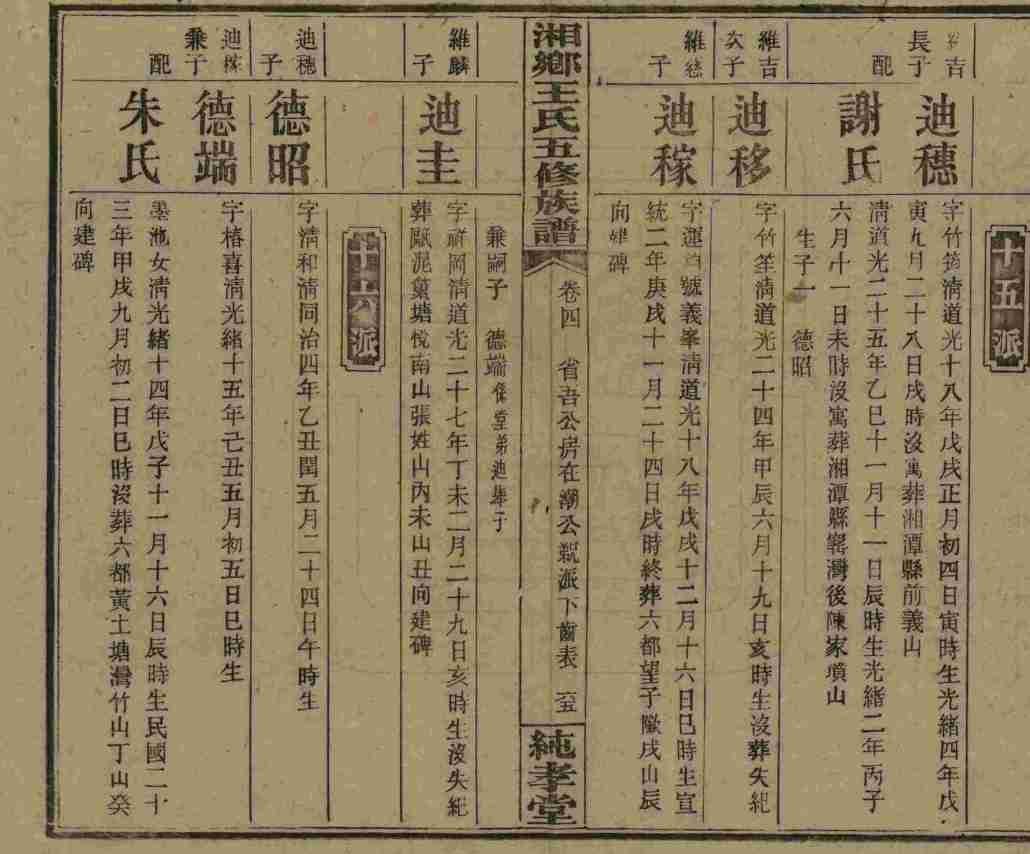 十五派
吉長子
迪穗
字竹筠淸道光十八年戊戌正月初四日寅時生光緒四年戊
寅九月二十八日戌時沒寓葬湘潭縣前義山
配
謝氏
淸道光二十五年乙巳十一月十一日辰時生光緒二年丙子
六月十一日未時沒寓葬湘潭縣窰灣後陳家塤山
生子一 德昭
維吉次子
迪移
字竹笙淸道光二十四年甲辰六月十九日亥時生沒葬失紀
維子
迪稼
字運號義峯淸道光十八年戊戌十二月十六日巳時生宣
統二年庚戌十一月二十四日戌時終葬六都望子戌山辰
向碑
兼嗣子 德端係堂弟迪子
湘鄉王氏五修族譜
卷四 省吾公房在潮公親派下齒表 六五
純孝堂
維麟子
迪圭
字祥岡淸道光二十七年丁未二月二十九日亥時生沒失紀
葬泥塘悅南山張姓山內未山丑向建碑
十六派
迪穗子
德昭
字淸和淸同治四年乙丑閏五月二十四日午時生
迪稼兼子
德端
字椿喜淸光緒十五年己丑五月初五日巳時生
配
朱氏
墨池女淸光緒十四年戊子十一月十六日辰時生民國二十
三年甲戌九月初二日巳時沒葬六都黃土塘灣竹山丁山癸
向建碑